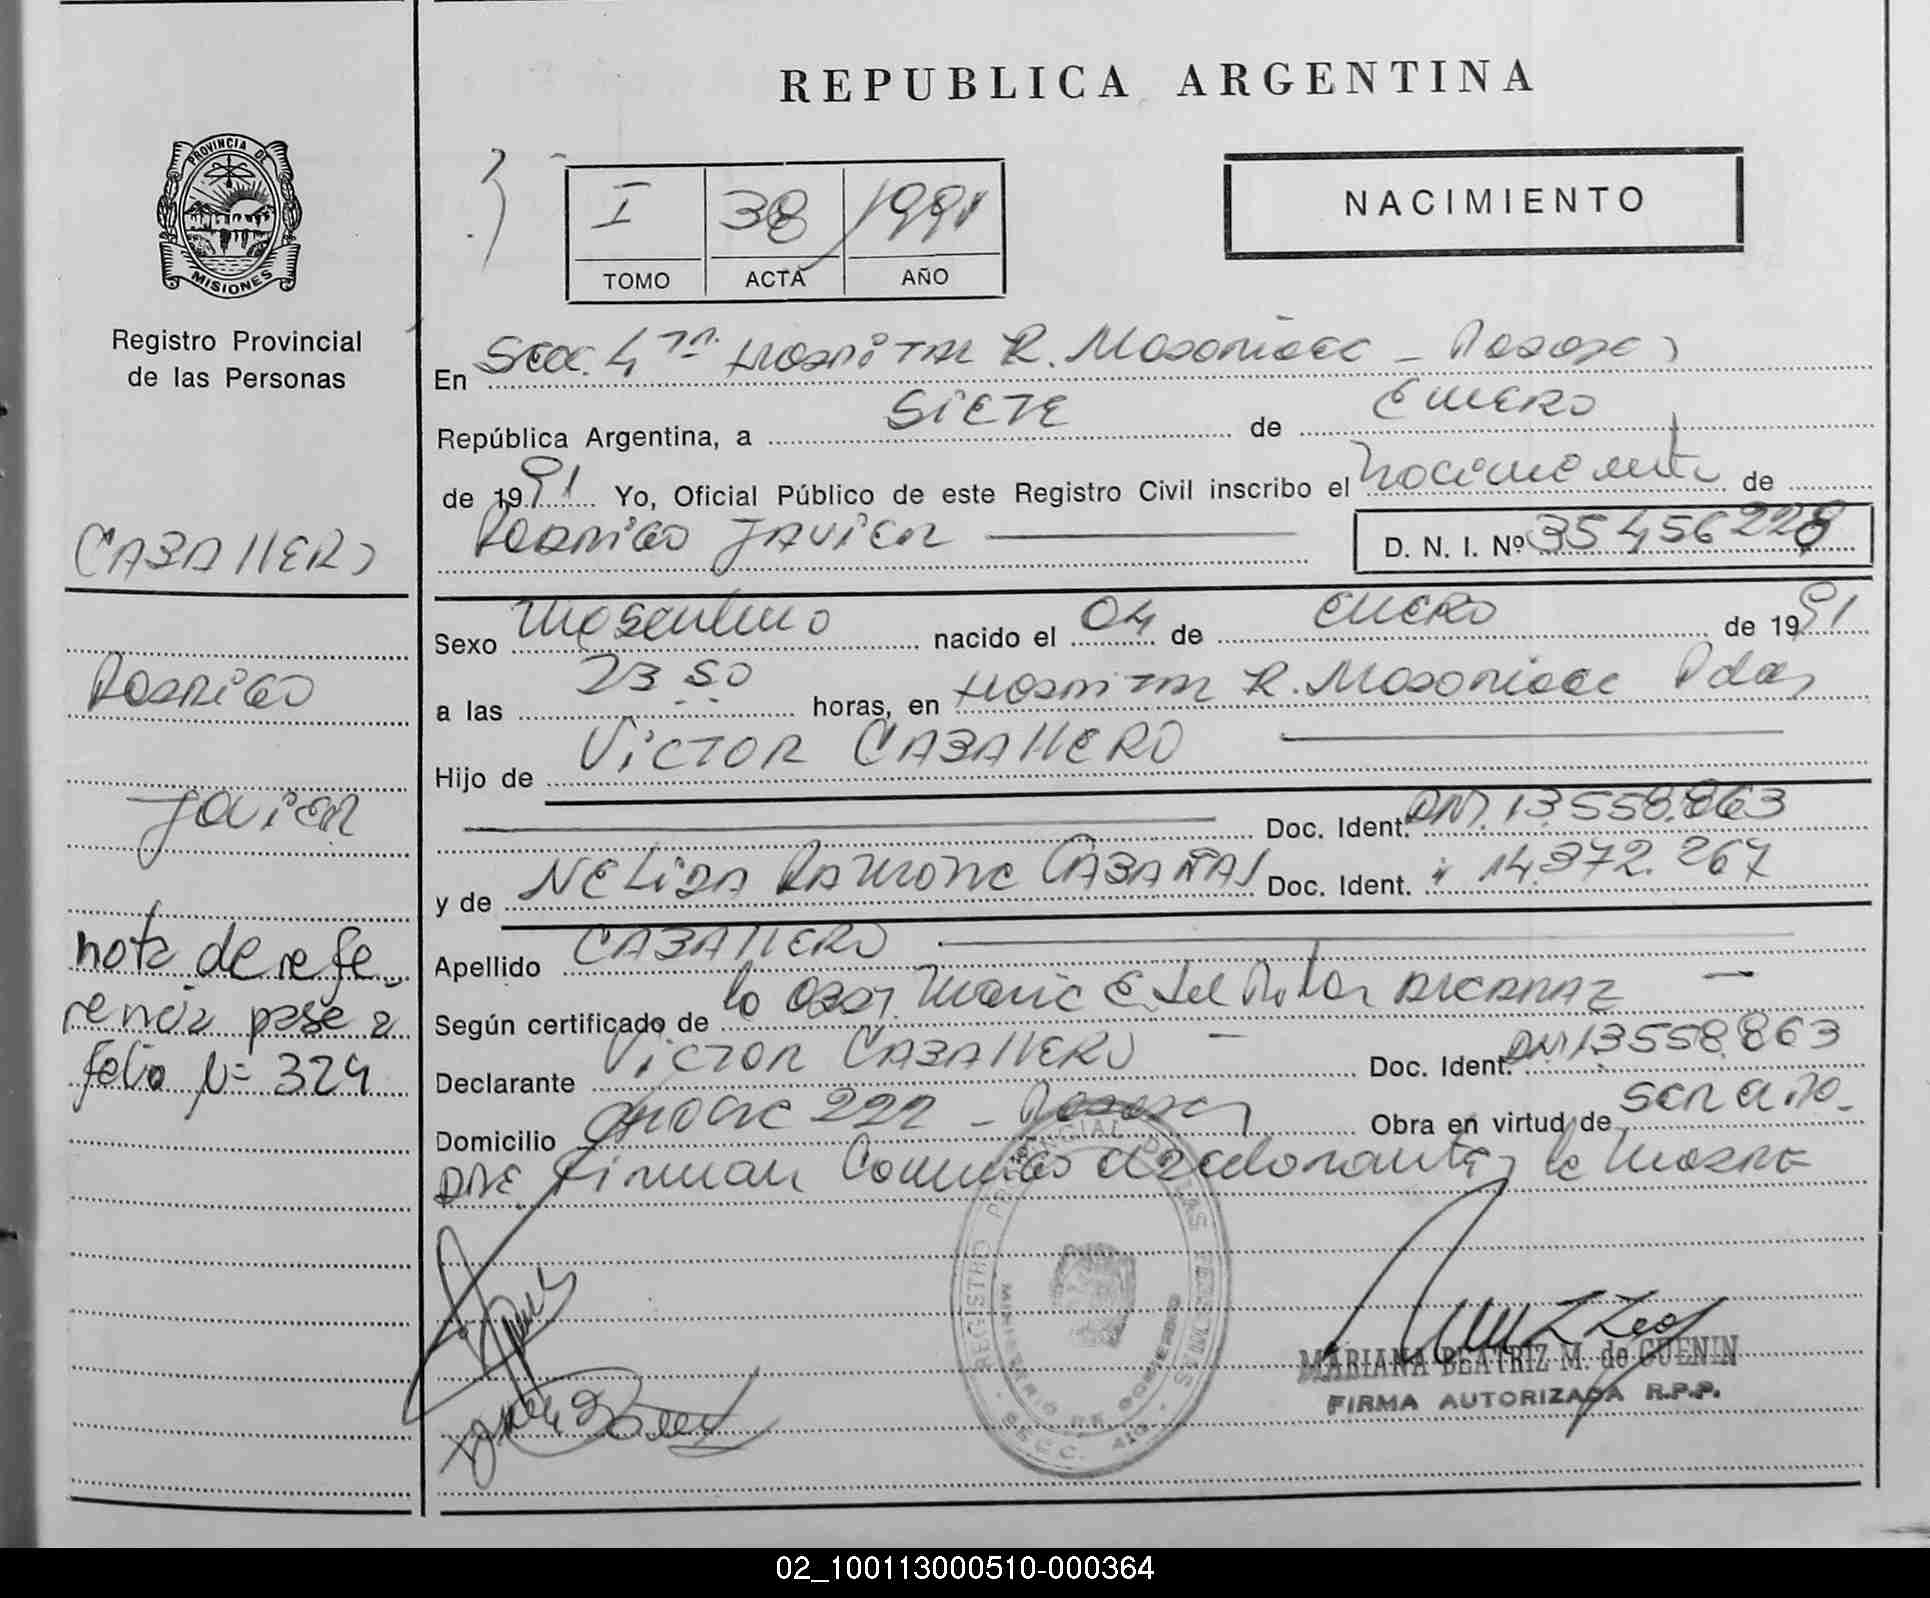 REPUBLICA ARGENTINA
PROVINCIA DE
MISIONES
Registro Provincial
de las Personas
I 38 1991
TOMO ACTA AÑO
NACIMIENTO
En Secc. 4ta Hospital R. Madariaga - Posadas
República Argentina, a SIETE de ENERO
de 1991 Yo, Oficial Público de este Registro Civil inscribo el nacimiento de
RODRIGO JAVIER D. N. I. Nº 35456228
CABALLERO
Rodrigo
Javier
nota de refe
rencia pase a
folio Nº 324
Sexo Masculino nacido el 04 de ENERO de 1991
a las 23 50 horas, en Hospital R. Madariaga Pdas
Hijo de VICTOR CABALLERO
Doc. Ident. DNI. 13.558.863
y de NELIDA RAMONA CABAÑAS Doc. Ident. " 14.372.267
Apellido CABALLERO
Según certificado de la Obst. Maria E. del Pilar
Declarante VICTOR CABALLERO Doc. Ident. DNI 13558.863
Domicilio 222 - Posadas Obra en virtud de ser el P.
DRE Firman Conmigo el declarante y la Madre
REGISTRO PROVINCIAL DE LAS PERSONAS
MINISTERIO DE GOBIERNO
SECC. 4ta
MARIANA BEATRIZ M. de GUENIN
FIRMA AUTORIZADA R.P.P.
02_100113000510-000364